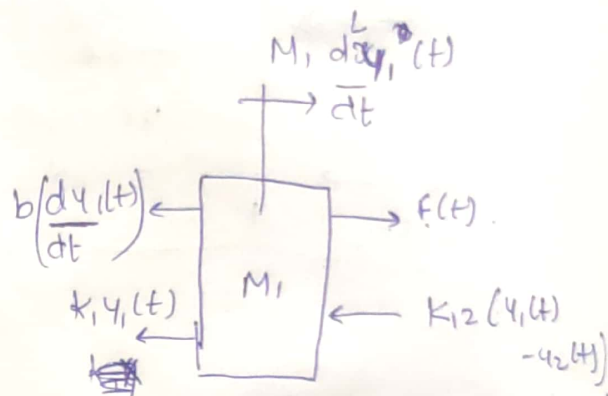 M₁ d²y₁(t)
dt
b(dy₁(t)
dt)
F(t).
M₁
K₁y₁(t)
K₁₂(y₁(t)
-y₂(t))